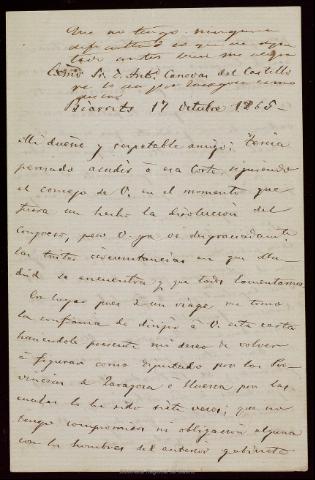 Que no tengo ninguna
dificultad
Exmo. Sr. D. Antº. Canovas del Castillo
Biarritz 17 Octubre 1865
Mi dueño y respetable amigo: Tenia
pensado acudir á esa Corte, siguiendo
el consejo de V. en el momento que
fuera un hecho la disolucion del
Congreso, pero V. ya ve desgraciadamte.
las tristes circunstancias en que Ma-
drid se encuentra y que todos lamentamos
En lugar pues de un viage me tomo
la confianza de dirigir á V. esta carta
haciendole presente mi deseo de volver
á figurar como diputado por las Pro-
vincias de Zaragoza ó Huesca por las
cuales lo he sido siete veces; que no
tengo compromiso ni obligacion alguna
con los hombres del anterior gabinete